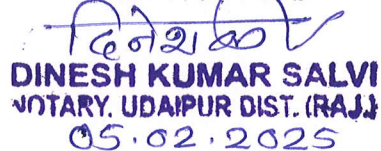 दिनेश
DINESH KUMAR SALVI
NOTARY. UDAIPUR DIST. (RAJ.)
05.02.2025